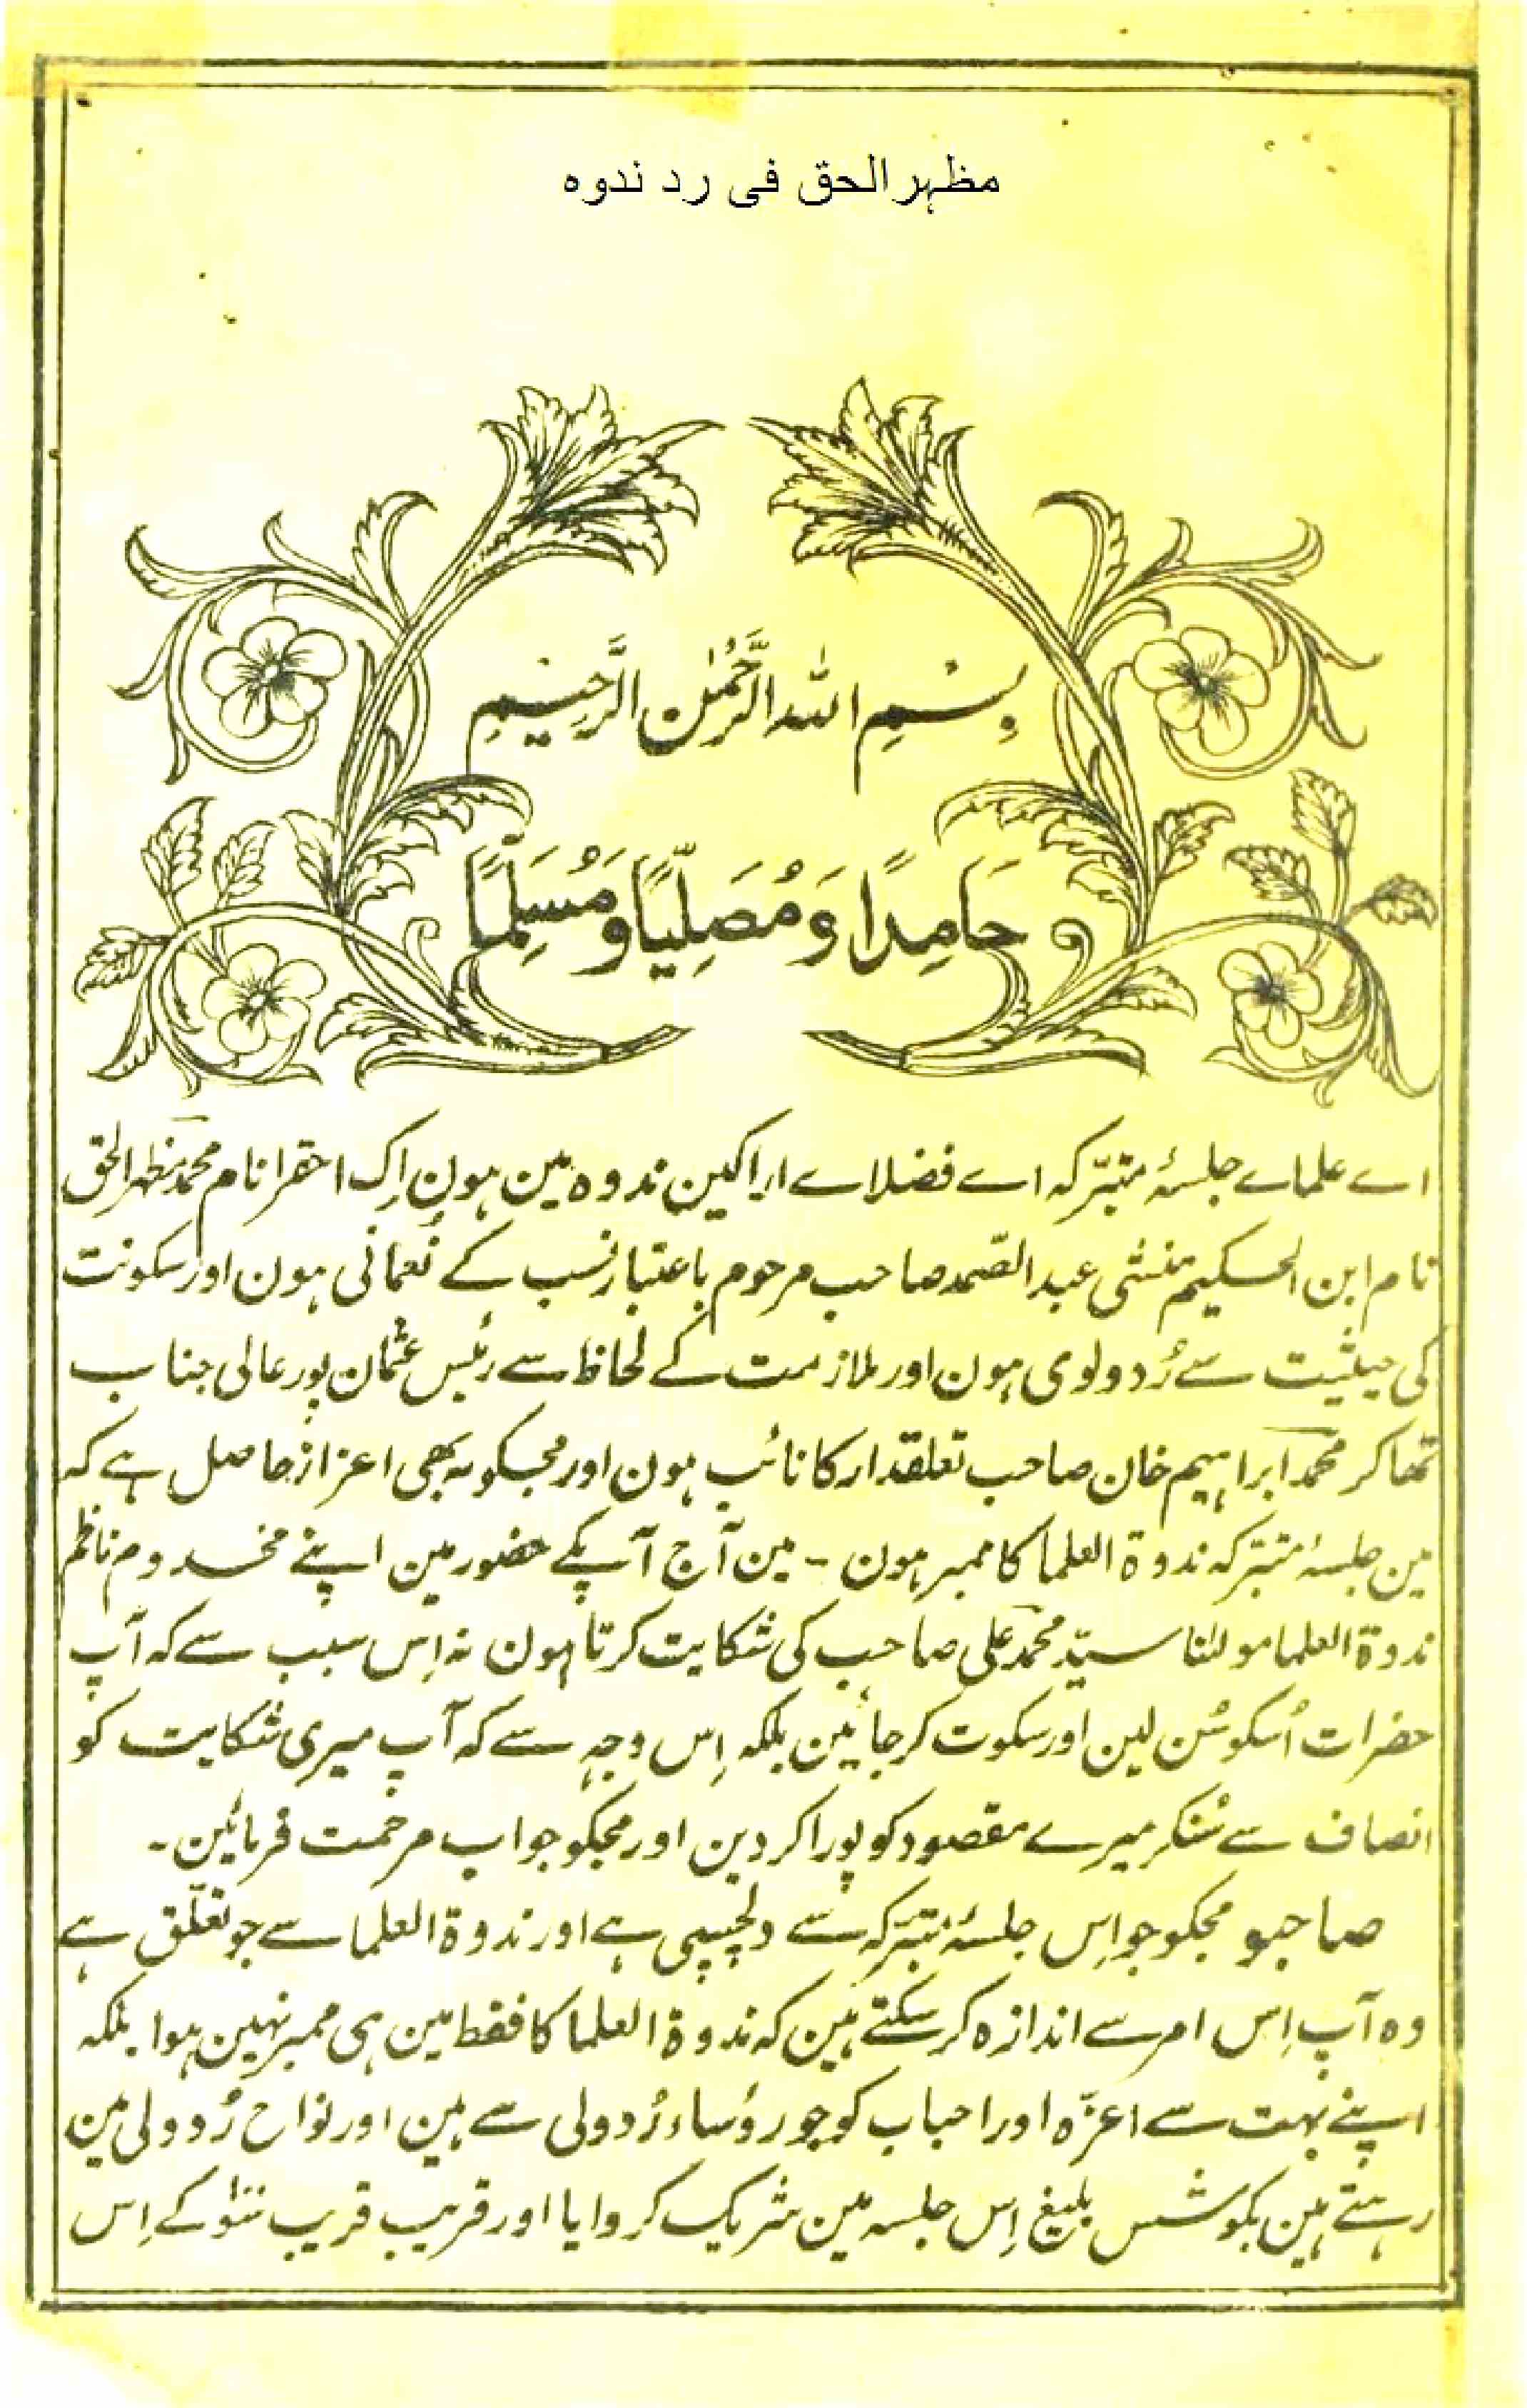 مظہرالحق فی رد ندوہ
بِسْمِ اللہِ الرَّحْمٰنِ الرَّحِیْمِ
حَامِدًا وَمُصَلِّیًا وَمُسَلِّمًا
اے علماے جلسۂ متبرّکہ اے فضلاے اراکین ندوہ مین ہون اِک احقر انام محمد مظہر الحق
نام ابن الحکیم منشی عبد الصّمد صاحب مرحوم باعتبار نسب کے نُعمانی ہون اور سکونت
کی حیثیت سے رُدولوی ہون اور ملازمت کے لحاظ سے رئیس عثمان پور عالی جناب
ٹھاکر محمد ابراہیم خان صاحب تعلقدار کا نائب ہون اور مجکو یہ بھی اعزاز حاصل ہے کہ
مین جلسۂ متبرّکہ ندوۃ العلما کا ممبر ہون - مین آج آپکے حضور مین اپنے مخدوم ناظم
ندوۃ العلما مولٰنا سیّد محمد علی صاحب کی شکایت کرتا ہون نہ اِس سبب سے کہ آپ
حضرات اُسکو سُن لین اور سکوت کر جائین بلکہ اِس وجہ سے کہ آپ میری شکایت کو
انصاف سے سُنکر میرے مقصود کو پورا کر دین اور مجکو جواب مرحمت فرمائین-
صاحبو مجکو جو اِس جلسۂ متبرّکہ سے دلچسپی ہے اور ندوۃ العلما سے جو تعلّق ہے
وہ آپ اِس امر سے اندازہ کر سکتے ہین کہ ندوۃ العلما کا فقط مین ہی ممبر نہین ہوا بلکہ
اپنے بہت سے اعزّہ اور احباب کو جو رؤساء رُدولی سے ہین اور نواح رُدولی مین
رہتے ہین بکوشش بلیغ اِس جلسہ مین شریک کروایا اور قریب قریب سَو کے اِس